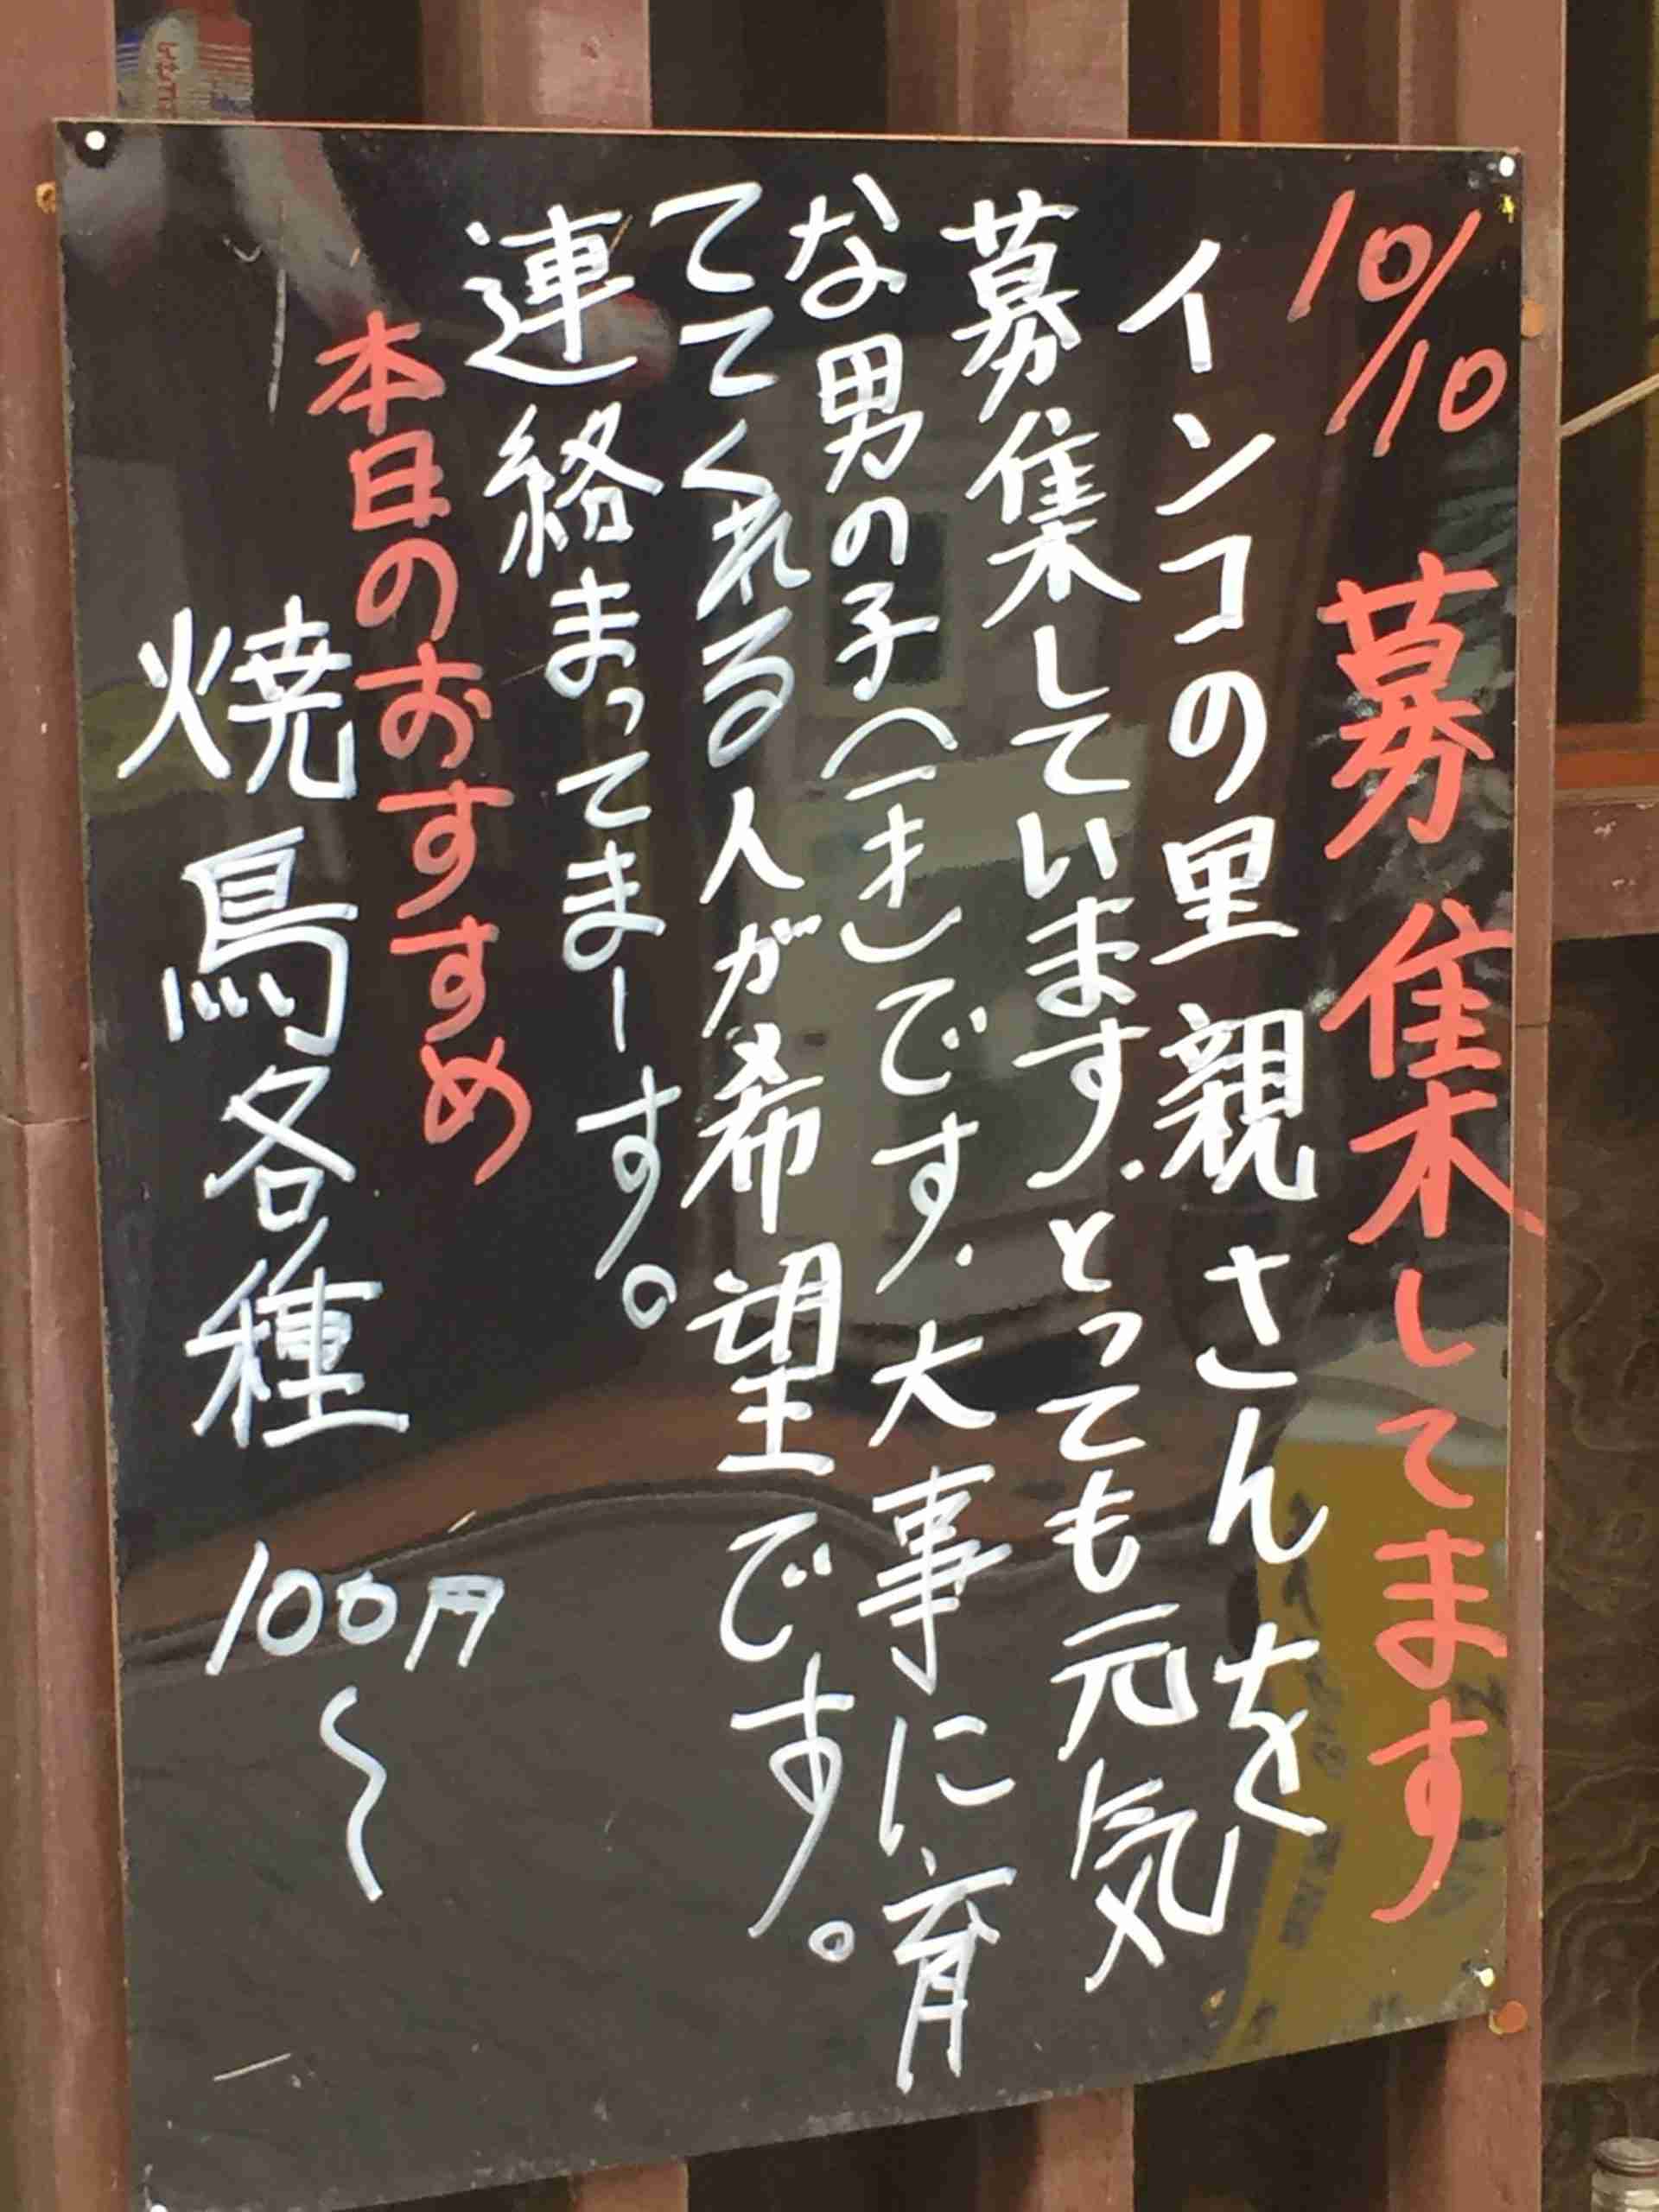 10/10 募集してます
インコの里親さんを
募集しています.とっても元気
な男の子(オ)です.大事に育
ててくれる人が希望です。
連絡まってまーす。
本日のおすすめ
焼鳥各種 100円〜